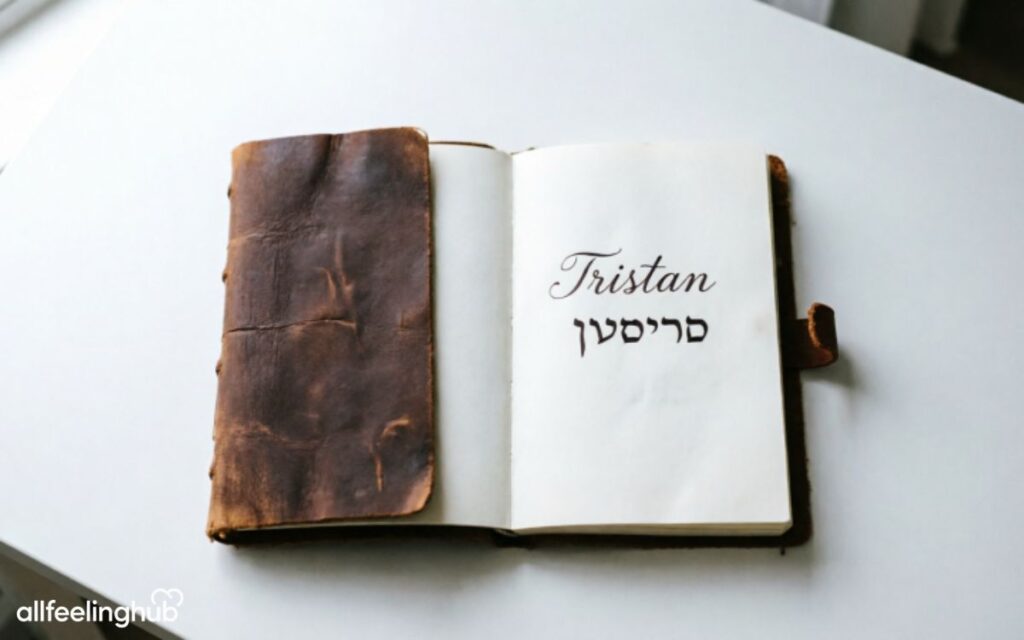 Tristan
סריסטן
allfeelinghub